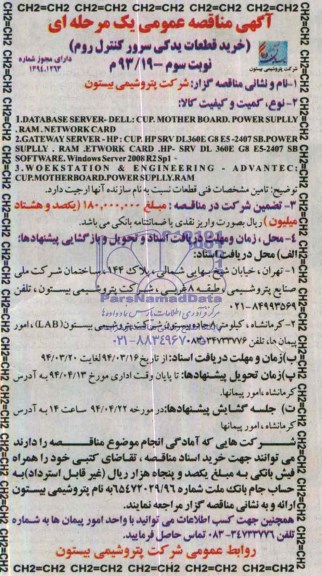 CH2=CH2 CH2=CH2 CH2=CH2 CH2=CH2 CH2=CH2
آگهی مناقصه عمومی یک مرحله ای
(خرید قطعات یدکی سرور کنترل روم)
نوبت سوم -۹۳/۱۹/م
شرکت پتروشیمی بیستون
دارای مجوز شماره
۱۳۹٤،۱۲۹۳
۱-نام و نشانی مناقصه گزار: شرکت پتروشیمی بیستون
۲-نوع، کمیت و کیفیت کالا:
1.DATABASE SERVER- DELL: CUP. MOTHER BOARD. POWER SUPLLY
. RAM . NETWORK CARD
2.GATEWAY SERVER - HP: CUP. HP SRV DL360E G8 E5-2407 SB.POWER
SUPLLY . RAM .ETWORK CARD .HP- SRV DL 360E G8 E5-2407 SB
SOFTWARE. Windows Server 2008 R2 Sp1 ·
3.WOEKSTATION & ENGINEERING - ADVANTEC:
CUP.MOTHERBOARD.POWER SUPLLY.RAM
توضیح: تامین مشخصات فنی قطعات نسبت به نام سازنده آنها ارجحیت دارد.
۳- تضمین شرکت در مناقصه : مبلغ ۱۸۰,۰۰۰,۰۰۰ (یکصد و هشتاد
میلیون ) ریال بصورت واریز نقدی یا ضمانتنامه بانکی می باشد.
٤- محل ، زمان ومهلت دریافت اسناد و تحویل و بازگشایی پیشنهادها:
الف) محل دریافت اسناد:
۱- تهران ، خیابان شیخ بهایی شمالی ، پلاک ۱٤٤، ساختمان شرکت ملی
صنایع پتروشیمی ، طبقه ۸ غربی ، شرکت پتروشیمی بیستون ، تلفن
۰۲۱-۸٤۹۹۳۵۶۹
ParsNamadData
۰۲۱-۸۸۳۴۹۶۷۰
۲- کرمانشاه ، کیلومتر ۸ جاده بیستون شرکت پتروشیمی بیستون (LAB)، امور
پیمان ها، تلفن
ب)زمان و مهلت دریافت اسناد: از تاریخ ۹٤/۰۳/۱۶ لغایت ۹٤/۰۳/۲۰
پ)زمان تحویل پیشنهادها: تا پایان وقت اداری مورخ ۹٤/۰٤/۱۳ به آدرس
کرمانشاه ،امور پیمانها.
ت) جلسه گشایش پیشنهادها:در مورخه ۹٤/۰٤/۲۲ ساعت ۱۴ به آدرس
کرمانشاه ،امور پیمانها.
شرکت هایی که آمادگی انجام موضوع مناقصه را دارند
می توانند جهت خرید اسناد مناقصه ، تقاضای کتبی خود را همراه
فیش بانکی به مبلغ یکصد و پنجاه هزار ریال (غیر قابل استرداد)به
حساب جام بانک ملت شماره ۶۵٤۷۲۰۲۹/۹۶ به نام پتروشیمی بیستون
ارائه و به نشانی مناقصه گزار مراجعه نمایند.
همچنین جهت کسب اطلاعات می توانید با واحد امور پیمان ها به شماره
تلفن ۳٤۷۳۳۷۷۶-۰۸۳ تماس حاصل فرمایید.
روابط عمومی شرکت پتروشیمی بیستون
CH2=CH2 CH2=CH2 CH2=CH2 CH2=CH2 CH2=CH2